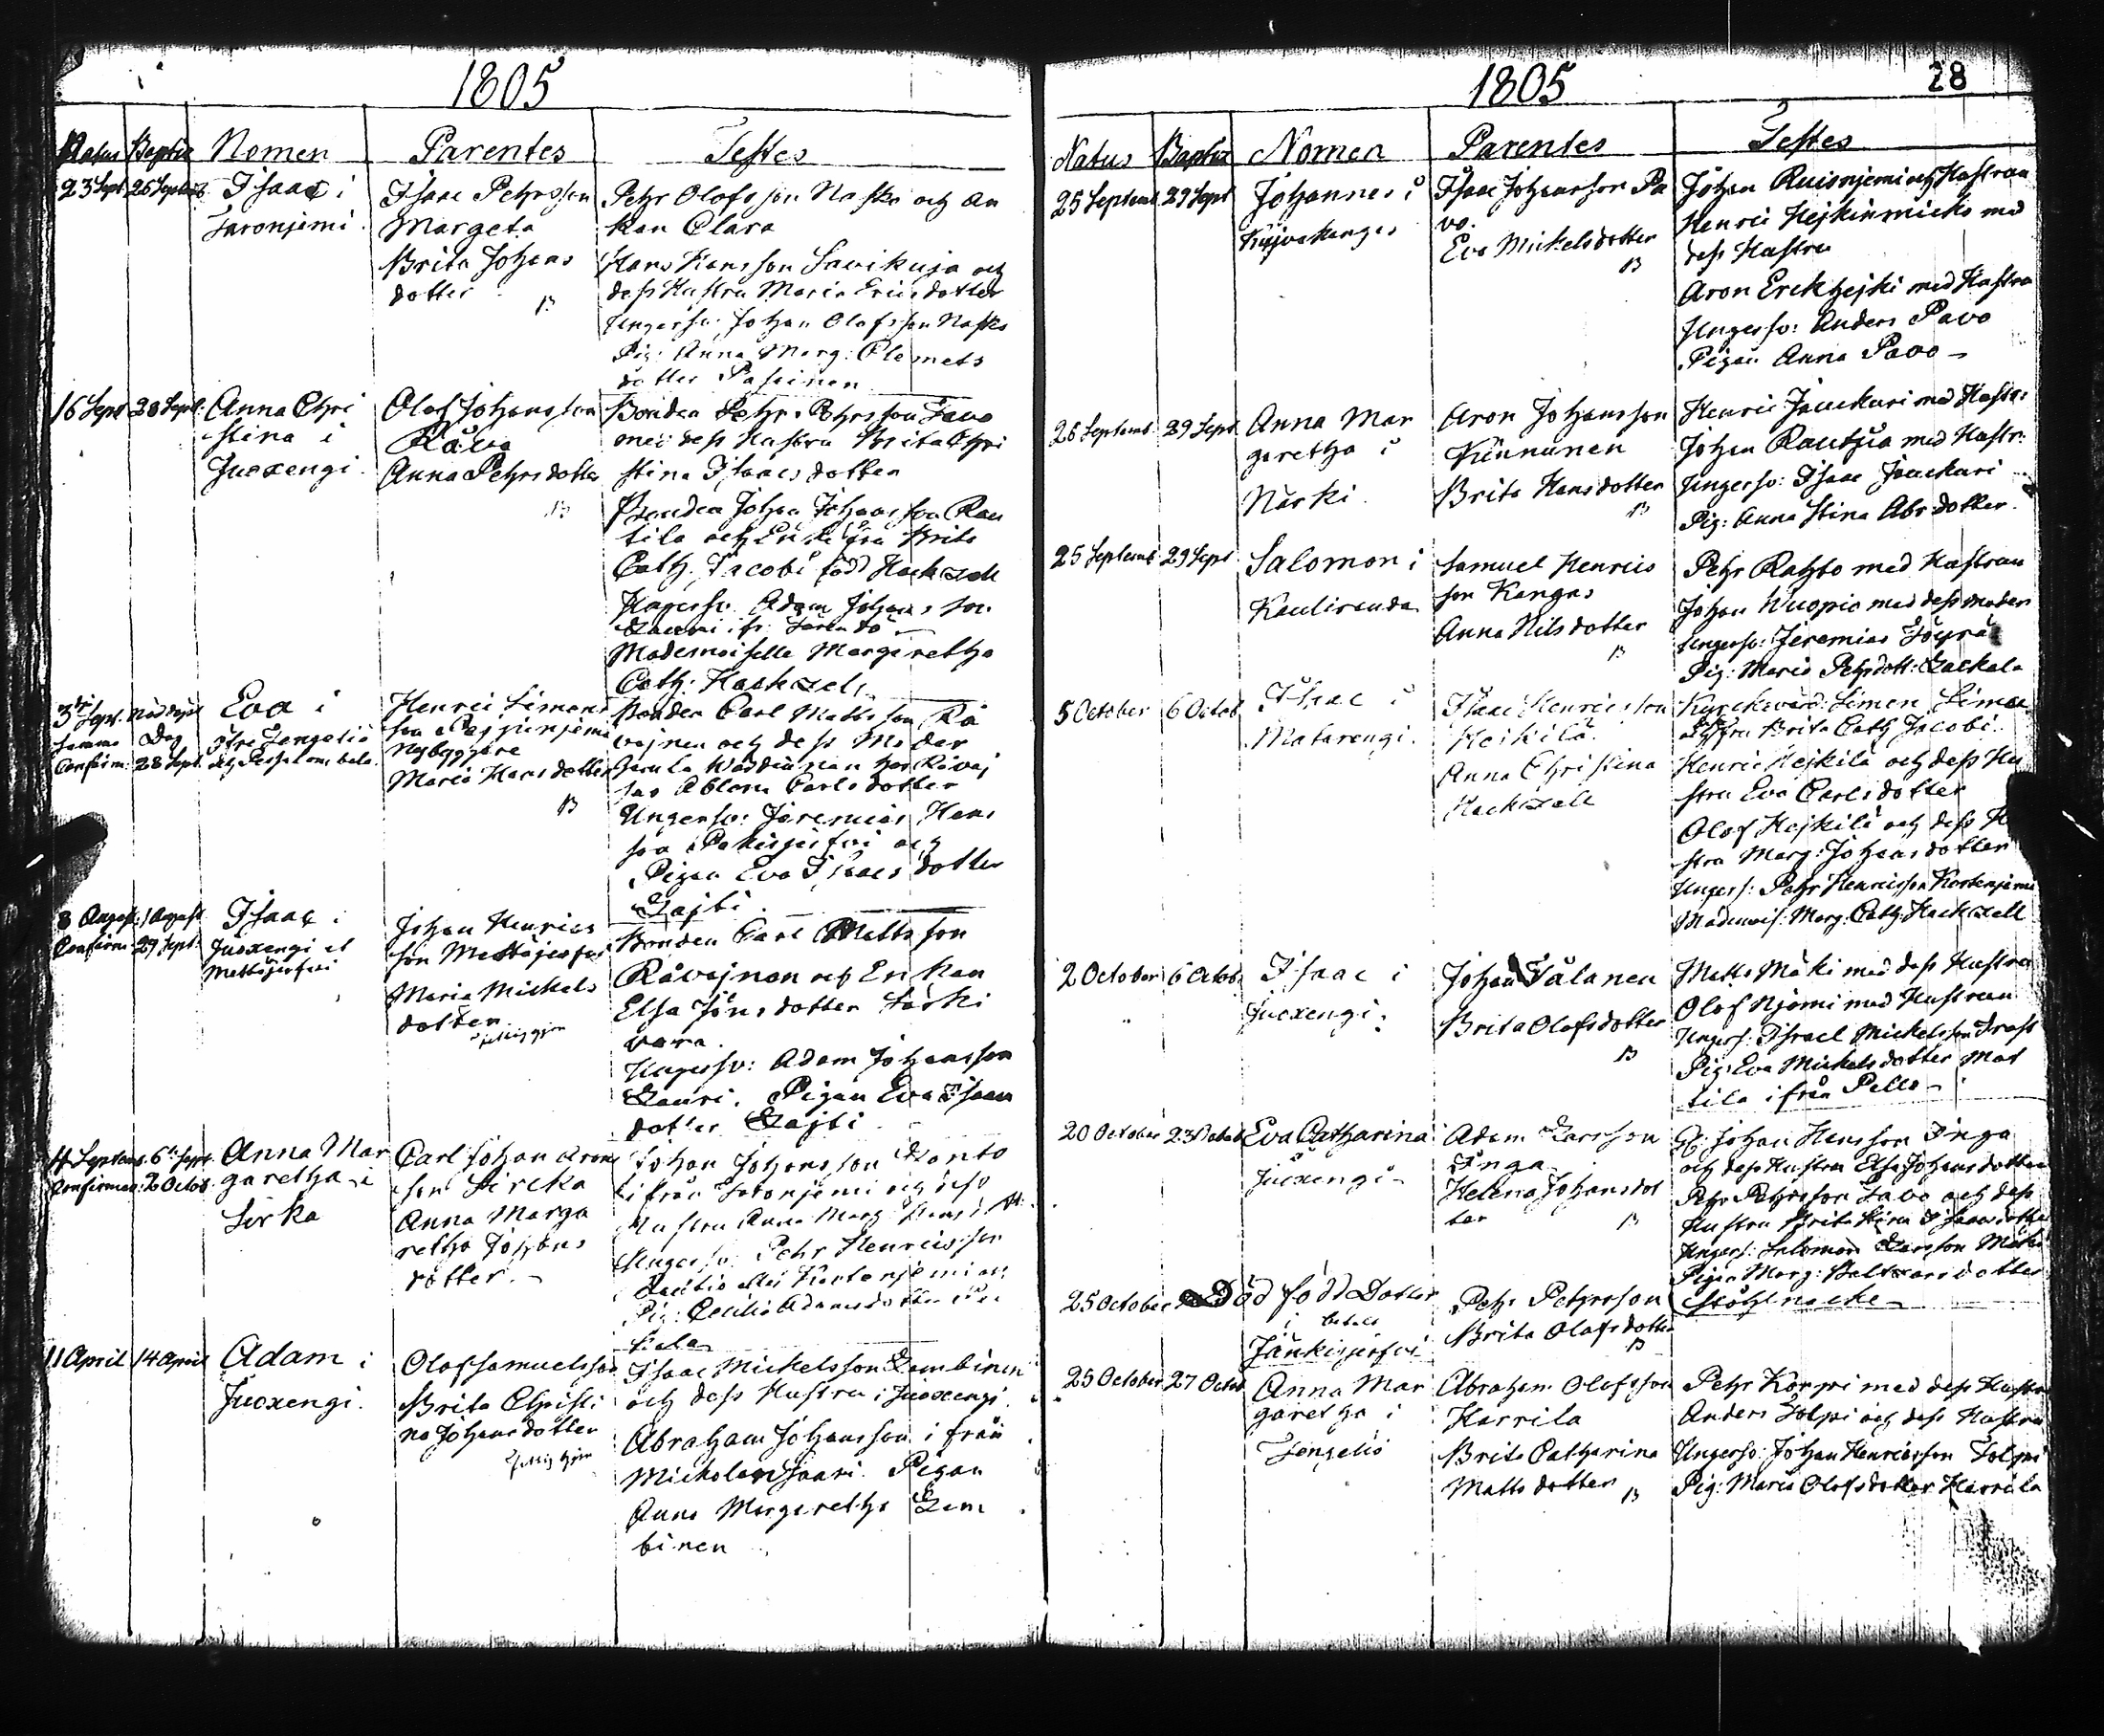 1805
Natus Baptiz Nomen Parentes Testes
23 Sept 26 Septemb Isaac i
Isaac Pehrsson
Margeta
Brita Johans
dotter
B
Pehr Olofsson Naska och En
kan Clara
Hans Hansson Savikuja och
dess Hustru Maria Ericsdotter
Ungersv: Johan Olofsson Naska
Pig: Anna Marg: Clemets
dotter
16 Sept 28 Sept: Anna Chri
stina i
Juoxengi
Olof Johansson
Räva
Anna Pehrsdotter
B
Bonden Pehr Pehrsson Tavo
med dess Hustru Brita Chri
stina Isaacsdotter
Bonden Johan Johansson Rau
tila och Enkefru Brita
Cath. Jacobi född Hackzell
Ungersv. Adam Johansson
Lauri
Mademoiselle Margaretha
Cath: Hackzell
3die Sept. Nöddöpt
samma Dag
Confirm. 28 Sept.
Eva i
Henric Simons
son
Nybyggare
Maria Hansdotter
B
Bonden Carl Mattsson Rå
vajnen och dess Moder
Carlsdotter
Ungersv: Jeremias Hans
son och
Pigan Eva Isaacsdotter
Lajti
8 August 1 August
Confirm 29 Sept.
Isaac i
Juoxengi et
Mettäjerfvi
Johan Henrics
son Mettäjerfvi
Maria Mickels
dotter
Bonden Carl Mattsson
Råvajnen och Enkan
Elsa Jönsdotter Särki
vara.
Ungersv: Adam Johansson
Lauri. Pigan Eva Isaacs
dotter Lajti
4 Septemb. 6te Sept.
Confirmer. 20 Octob.
Anna Mar
garetha i
Sirka
Carl Johan Arons
son Sircka
Anna Marga
retha Johans
dotter.
Johan Johansson
ifrån och dess
Hustru Anna Marg:
Ungersv: Pehr Henricsson
Pig: Cecilia Adamsdotter
11 April 14 April Adam i
Juoxengi.
Olof Samuelsson
Brita Christi
na Johansdotter
Isaac Mickelsson Lambinen
och dess Hustru i Juoxengi
Abraham Johansson i från
Pigan
Anna Margaretha Lam
binen
1805 28
Natus Baptiz Nomen Parentes Testes
25 Septemb 29 Sept Johannes i
Isaac Johansson Pa
vo.
Eva Mickelsdotter
B
Johan Ruisnjemi och Hustrun
Henric Hejkinmicko med
dess Hustru
Aron Erckhejki med Hustru
Ungersv: Anders Pavo
Pigan Anna Pavo
26 Septemb 29 Sept Anna Mar
garetha i
Närki
Aron Johansson
Kinnunen
Brita Hansdotter
B
Henric Jauckuri med Hustr:
Johan Rautjia med Hustr:
Ungersv: Isaac Jauckuri
Pig: Anna Stina Abr:dotter.
25 Septemb 29 Sept Salomon i
Kauliranda
Samuel Henrics
son Kangas
Anna Nilsdotter
B
Pehr Rahto med Hustrun
Johan Wuopio med dess moder
Ungersv: Jeremias Töyrä
Pig: Maria Pehrsdott:
5 October 6 Octob Isaac i
Matarengi.
Isaac Henricsson
Heikilä.
Anna Christina
Hackzell
Kyrckovärd: Simon
Enkefru Brita Cath Jacobi
Henric Hejkilä och dess Hu
stru Eva Carlsdotter
Olof Hejkilä och dess Hu
stru Marg: Johansdotter
Ungers: Pehr Henricsson Kortenjemi
Mademois: Marg: Cath: Hackzell
2 October 6 Octob Isaac i
Juoxengi.
Johan Tålanen
Brita Olofsdotter
B
Matts Mäki med dess Hustru
Olof Njemi med Hustrun
Ungers: Israel Mickelsson
Pig: Eva Mickelsdotter Mat
tila ifrån Pello
20 October 23 Octob Eva Catharina
Juoxengi
Adam Larsson
Fnga
Helena Johansdot
ter
B
Johan Hansson Finga
och dess Hustru Elsa Johansdotter
Pehr Pehrsson Tavo och dess
Hustru Brita Stina Isaacsdotter
Ungers: Salomon Larsson Mäki
Pigan Marg: Baltzarsdotter
25 October Död född Dotter
i
Jänkisjerfvi
Pehr Pehrsson
Brita Olofsdotter
B
25 October 27 Octob Anna Mar
garetha i
Tengeliö
Abraham Olofsson
Karrila
Brita Catharina
Mattsdotter
B
Pehr Korpi med dess Hustru
Anders Tolpi och dess Hustru
Ungersv: Johan Henricsson Tolpi
Pig: Maria Olofsdotter Karrila